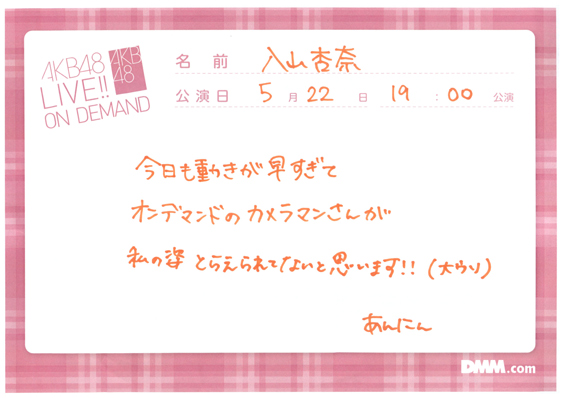 AKB48
LIVE!!
ON DEMAND
AKB
48
名前 入山杏奈
公演日 5月22日 19:00公演
今日も動きが早すぎて
オンデマンドのカメラマンさんが
私の姿とらえられてないと思います!!(大ウソ)
あんにん
DMM.com